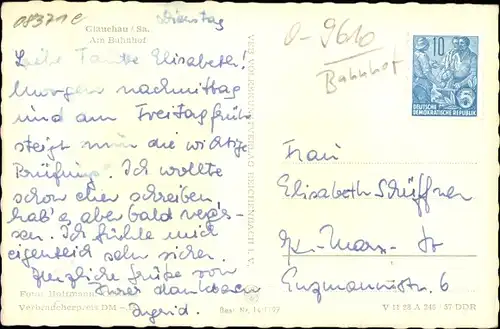 08371e
Dienstag
Glauchau / Sa.
Am Bahnhof
Liebe Tante Elisabeth!
Morgen nachmittag
und am Freitag früh
steigt nun die wichtige
Prüfung. Ich wollte
schon eher schreiben,
hab's aber bald verges-
sen. Ich fühle mich
eigentlich sehr sicher.
Herzliche Grüße von
Ihrer dankbaren
Ingrid.
Foto: Hoffmann
Verbraucherpreis DM
Best.-Nr.
VEB VOLKSKUNSTVERLAG REICHENBACH I. V.
0-9610
Bahnhof
10
DEUTSCHE
DEMOKRATISCHE REPUBLIK
Frau
Elisabeth Schüffner
K.-Marx-St
6
V 11 28 A 245 / 57 DDR